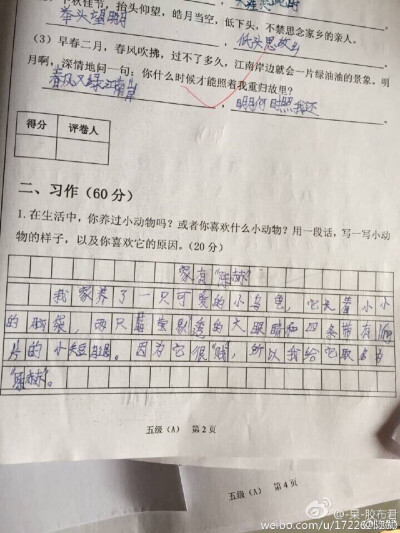 秋佳节，抬头仰望，皓月当空，低下头，不禁思念家乡的亲人。
举头望明
低头思故乡
（3）早春二月，春风吹拂，过不了多久，江南岸边就会一片绿油油的景象。明
月啊，深情地问一句：你什么时候才能照着我重归故里？
春风又绿江南岸
明月何时照我还
得分 评卷人
二、习作（60 分）
1. 在生活中，你养过小动物吗？或者你喜欢什么小动物？用一段话，写一写小动
物的样子，以及你喜欢它的原因。（20 分）
家有“陈赫”
我家养了一只可爱的小乌龟，它长着小小
的脑袋，两只 的大眼睛和四条带有
片的小短腿。因为它很“贱”，所以我给它取名为
“陈赫”。
五级（A） 第 2 页
五级（A） 第 4 页
@-呆-胶布君
weibo.com/u/172262